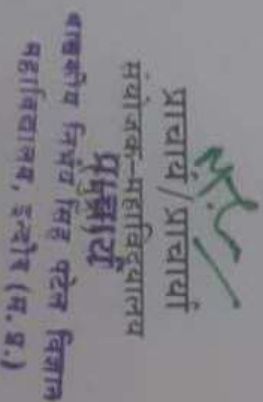 प्राचार्य/प्राचार्या
संयोजक-महाविद्यालय
प्राचार्य
शासकीय निर्भय सिंह पटेल विज्ञान
महाविद्यालय, इन्दौर (म.प्र.)